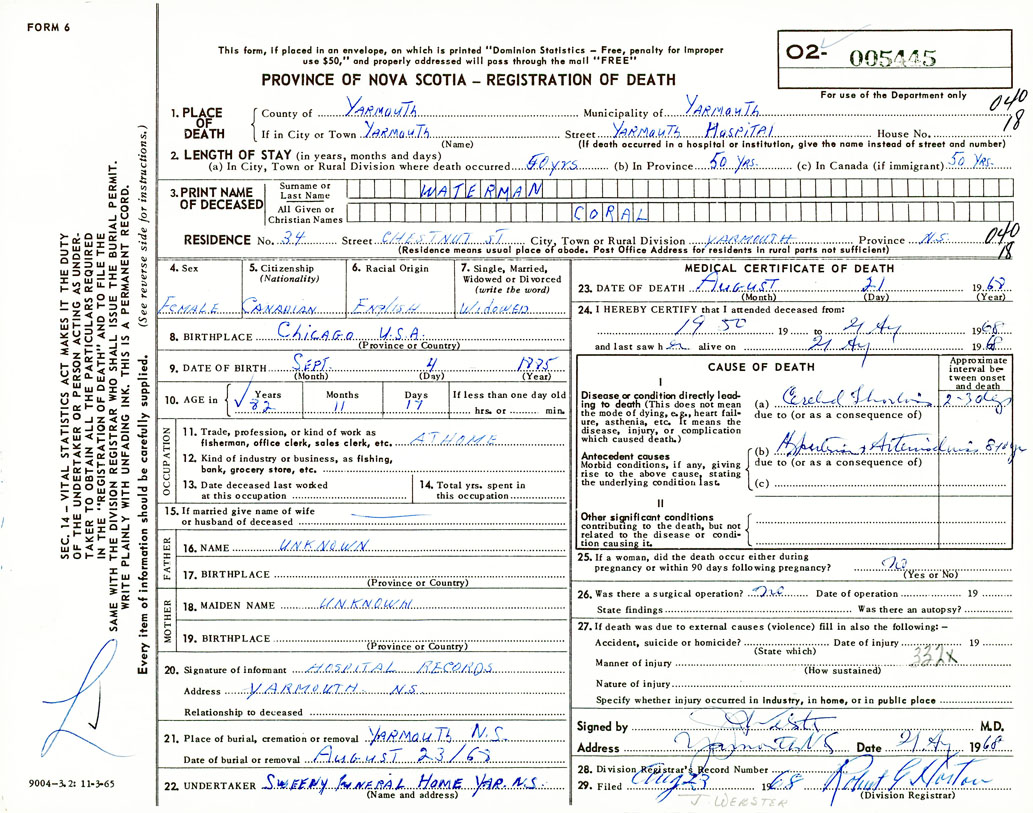 FORM 6
This form, if placed in an envelope, on which is printed "Dominion Statistics – Free, penalty for improper
use $50," and properly addressed will pass through the mail "FREE"
PROVINCE OF NOVA SCOTIA – REGISTRATION OF DEATH
O2- 005445
For use of the Department only
040
18
1. PLACE OF DEATH
County of YARMOUTH Municipality of YARMOUTH
If in City or Town YARMOUTH Street YARMOUTH HOSPITAL House No.
(Name) (If death occurred in a hospital or institution, give the name instead of street and number)
2. LENGTH OF STAY (in years, months and days)
(a) In City, Town or Rural Division where death occurred 50 yrs (b) In Province 50 Yrs. (c) In Canada (if immigrant) 50 Yrs.
3. PRINT NAME OF DECEASED
Surname or Last Name WATERMAN
All Given or Christian Names CORAL
RESIDENCE No. 34 Street CHESTNUT ST City, Town or Rural Division YARMOUTH Province N.S. 040
(Residence means usual place of abode. Post Office Address for residents in rural parts not sufficient) 18
4. Sex
FEMALE
5. Citizenship
(Nationality)
CANADIAN
6. Racial Origin
ENGLISH
7. Single, Married,
Widowed or Divorced
(write the word)
WIDOWED
8. BIRTHPLACE CHICAGO U.S.A.
(Province or Country)
9. DATE OF BIRTH SEPT. 4 1885
(Month) (Day) (Year)
10. AGE in Years Months Days If less than one day old
82 11 17 hrs. or min.
OCCUPATION
11. Trade, profession, or kind of work as
fisherman, office clerk, sales clerk, etc. AT HOME
12. Kind of industry or business, as fishing,
bank, grocery store, etc.
13. Date deceased last worked
at this occupation
14. Total yrs. spent in
this occupation
15. If married give name of wife
or husband of deceased
FATHER
16. NAME UNKNOWN
17. BIRTHPLACE
(Province or Country)
MOTHER
18. MAIDEN NAME UNKNOWN
19. BIRTHPLACE
(Province or Country)
20. Signature of informant HOSPITAL RECORDS
Address YARMOUTH N.S
Relationship to deceased
21. Place of burial, cremation or removal YARMOUTH N.S.
Date of burial or removal AUGUST 23/68
22. UNDERTAKER SWEENY FUNERAL HOME YAR. N.S.
(Name and address)
MEDICAL CERTIFICATE OF DEATH
23. DATE OF DEATH AUGUST 21 1968
(Month) (Day) (Year)
24. I HEREBY CERTIFY that I attended deceased from:
1950 19 to 21 Aug 1968
and last saw her alive on 21 Aug 1968
CAUSE OF DEATH
Approximate
interval be-
tween onset
and death
I
Disease or condition directly lead-
ing to death (This does not mean
the mode of dying, e.g., heart fail-
ure, asthenia, etc. It means the
disease, injury, or complication
which caused death.)
(a) Cerebral Thrombosis 2-3 days
due to (or as a consequence of)
Antecedent causes
Morbid conditions, if any, giving
rise to the above cause, stating
the underlying condition last.
(b) Hypertension, Arteriosclerosis
due to (or as a consequence of)
(c)
II
Other significant conditions
contributing to the death, but not
related to the disease or condi-
tion causing it.
25. If a woman, did the death occur either during
pregnancy or within 90 days following pregnancy? no
(Yes or No)
26. Was there a surgical operation? no Date of operation 19
State findings Was there an autopsy?
27. If death was due to external causes (violence) fill in also the following: –
Accident, suicide or homicide? Date of injury 19
(State which)
332X
Manner of injury
(How sustained)
Nature of injury
Specify whether injury occurred in industry, in home, or in public place
Signed by M.D.
Address Yarmouth NS Date 21 Aug 1968
28. Division Registrar's Record Number
29. Filed Aug 23 1968 Robert G Horton
(Division Registrar)
J. WEBSTER
SEC. 14 – VITAL STATISTICS ACT MAKES IT THE DUTY
OF THE UNDERTAKER OR PERSON ACTING AS UNDER-
TAKER TO OBTAIN ALL THE PARTICULARS REQUIRED
IN THE "REGISTRATION OF DEATH" AND TO FILE THE
SAME WITH THE DIVISION REGISTRAR WHO SHALL ISSUE THE BURIAL PERMIT.
WRITE PLAINLY WITH UNFADING INK. THIS IS A PERMANENT RECORD.
Every item of information should be carefully supplied. (See reverse side for instructions.)
9004–3.2: 11-3-65